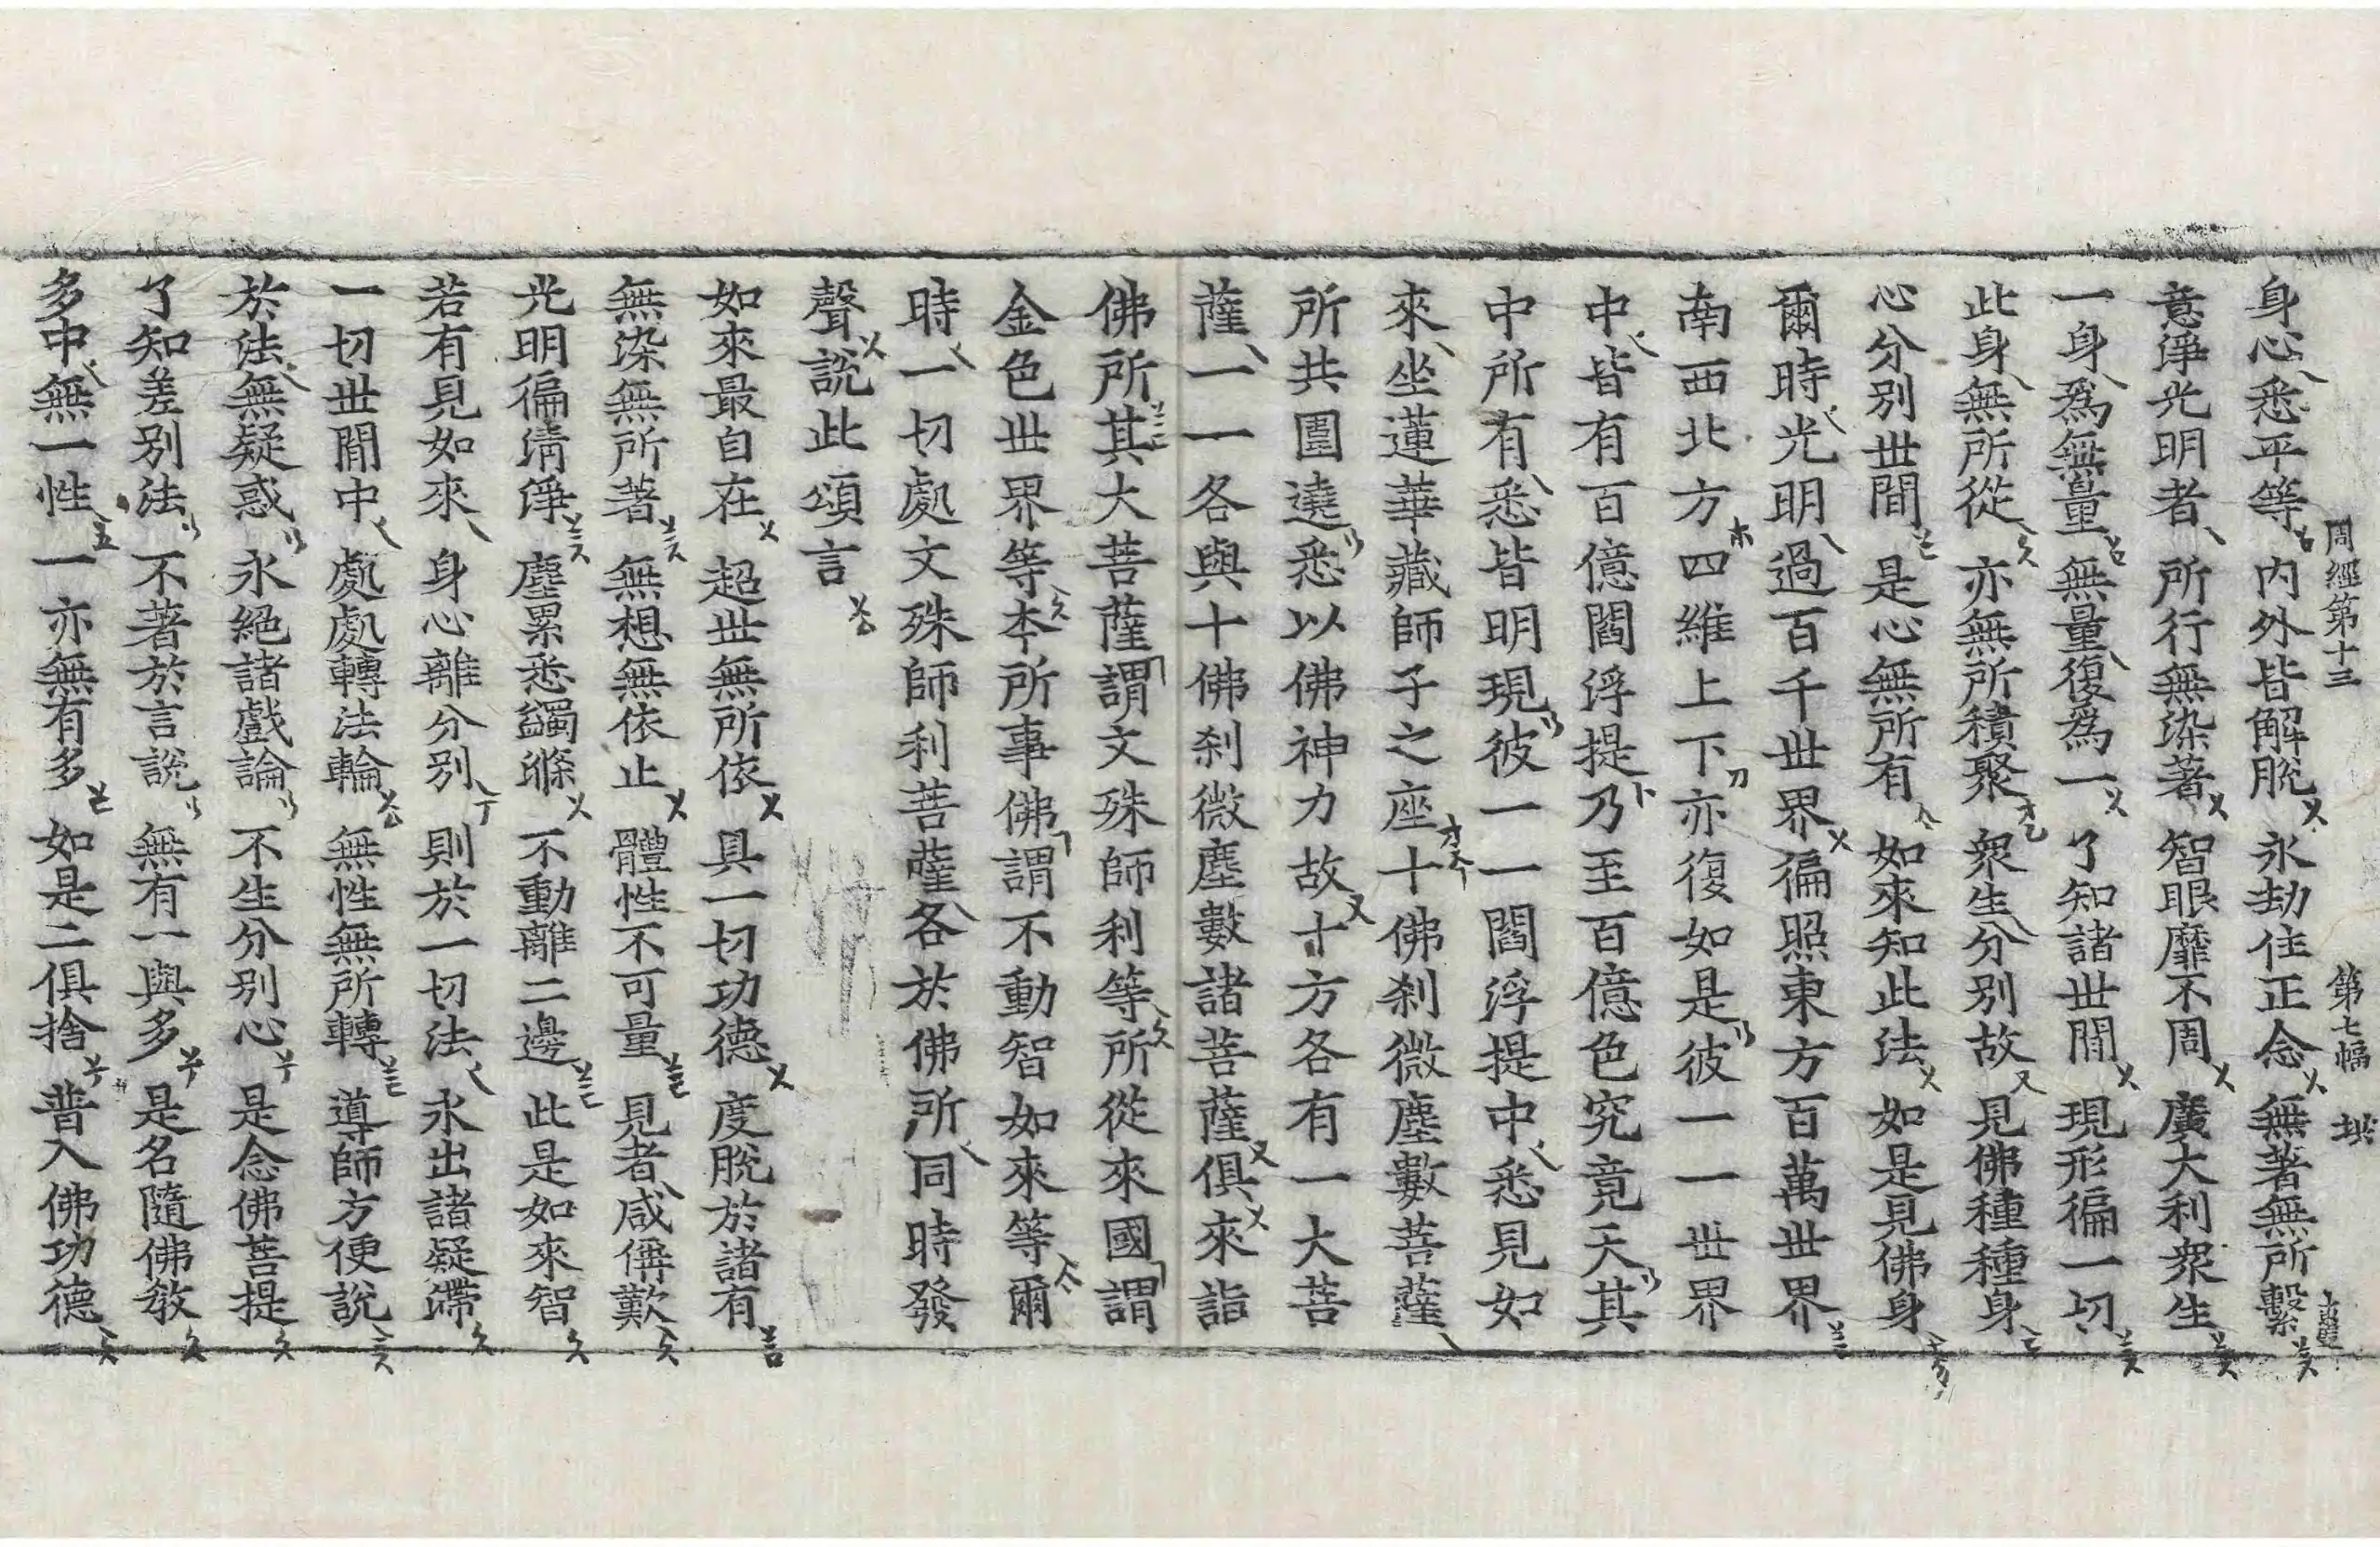 周經第十三 第七幅 拱
身心悉平等 内外皆解脫 永劫住正念 無著無所繫
意淨光明者 所行無染著 智眼靡不周 廣大利衆生
一身爲無量 無量復爲一 了知諸世間 現形徧一切
此身無所從 亦無所積聚 衆生分別故 見佛種種身
心分別世間 是心無所有 如來知此法 如是見佛身
爾時光明過百千世界徧照東方百萬世界
南西北方四維上下亦復如是彼一一世界
中皆有百億閻浮提乃至百億色究竟天其
中所有悉皆明現彼一一閻浮提中悉見如
來坐蓮華藏師子之座十佛剎微塵數菩薩
所共圍遶悉以佛神力故十方各有一大菩
薩一一各與十佛剎微塵數諸菩薩俱來詣
佛所其大菩薩謂文殊師利等所從來國謂
金色世界等本所事佛謂不動智如來等爾
時一切處文殊師利菩薩各於佛所同時發
聲說此頌言
如來最自在 超世無所依 具一切功德 度脫於諸有
無染無所著 無想無依止 體性不可量 見者咸稱歎
光明徧淸淨 塵累悉蠲滌 不動離二邊 此是如來智
若有見如來 身心離分別 則於一切法 永出諸疑滯
一切世間中 處處轉法輪 無性無所轉 導師方便說
於法無疑惑 永絕諸戲論 不生分別心 是念佛菩提
了知差別法 不著於言說 無有一與多 是名隨佛敎
多中無一性 一亦無有多 如是二俱捨 普入佛功德